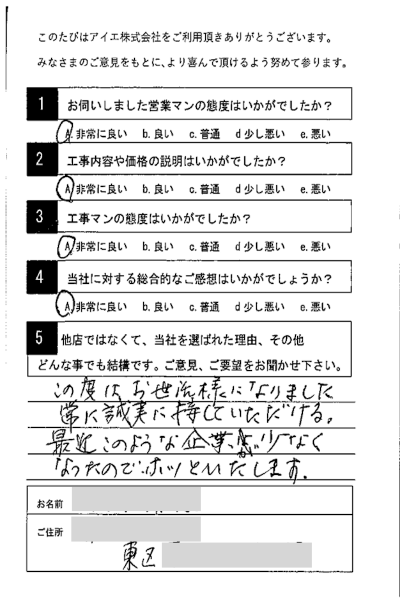 このたびはアイエ株式会社をご利用頂きありがとうございます。
みなさまのご意見をもとに、より喜んで頂けるよう努めて参ります。
1 お伺いしました営業マンの態度はいかがでしたか？
A.非常に良い b.良い c.普通 d少し悪い e.悪い
2 工事内容や価格の説明はいかがでしたか？
A.非常に良い b.良い c.普通 d少し悪い e.悪い
3 工事マンの態度はいかがでしたか？
A.非常に良い b.良い c.普通 d少し悪い e.悪い
4 当社に対する総合的なご感想はいかがでしょうか？
A.非常に良い b.良い c.普通 d少し悪い e.悪い
5 他店ではなくて、当社を選ばれた理由、その他
どんな事でも結構です。ご意見、ご要望をお聞かせ下さい。
この度はお世話様になりました
常に誠実に接していただける。
最近このような企業が少なく
なったのでホッといたします.
お名前
ご住所
東区